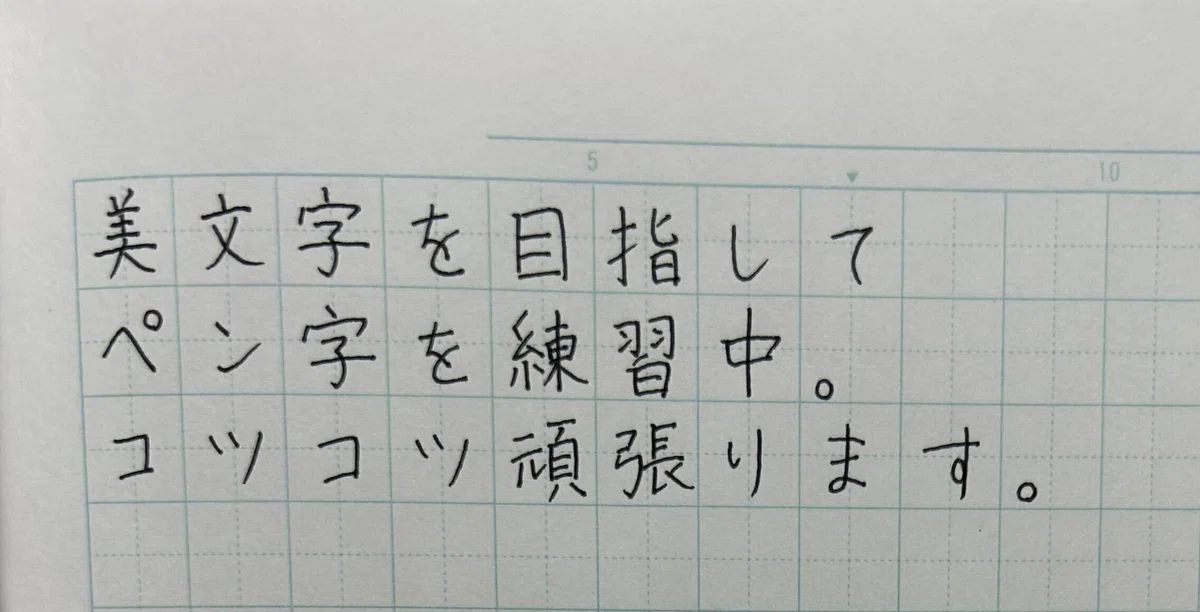 5 10
美文字を目指して
ペン字を練習中。
コツコツ頑張ります。